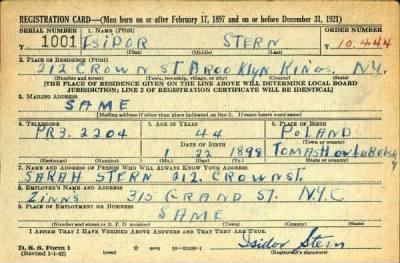 REGISTRATION CARD—(Men born on or after February 17, 1897 and on or before December 31, 1921)
SERIAL NUMBER 1. NAME (Print) ORDER NUMBER
1001 ISIDOR STERN 10,444
(First) (Middle) (Last)
2. PLACE OF RESIDENCE (Print)
212 CROWN ST BROOKLYN KINGS N.Y.
(Number and street) (Town, township, village, or city) (County) (State)
[THE PLACE OF RESIDENCE GIVEN ON THE LINE ABOVE WILL DETERMINE LOCAL BOARD
JURISDICTION; LINE 2 OF REGISTRATION CERTIFICATE WILL BE IDENTICAL]
3. MAILING ADDRESS
SAME
[Mailing address if other than place indicated on line 2. If same insert word same]
4. TELEPHONE 5. AGE IN YEARS 6. PLACE OF BIRTH
PR3-2204 44 POLAND
DATE OF BIRTH (Town or county)
1 22 1898 TOMASHOW LUBELSKY
(Exchange) (Number) (Mo.) (Day) (Yr.) (State or country)
7. NAME AND ADDRESS OF PERSON WHO WILL ALWAYS KNOW YOUR ADDRESS
SARAH STERN 212 CROWN ST.
8. EMPLOYER'S NAME AND ADDRESS
ZINNS 315 GRAND ST. N.Y.C
9. PLACE OF EMPLOYMENT OR BUSINESS
SAME
(Number and street or R. F. D. number) (Town) (County) (State)
I AFFIRM THAT I HAVE VERIFIED ABOVE ANSWERS AND THAT THEY ARE TRUE.
D. S. S. Form 1 Isidor Stern
(Revised 1-1-42) (over) GPO (Registrant's signature)